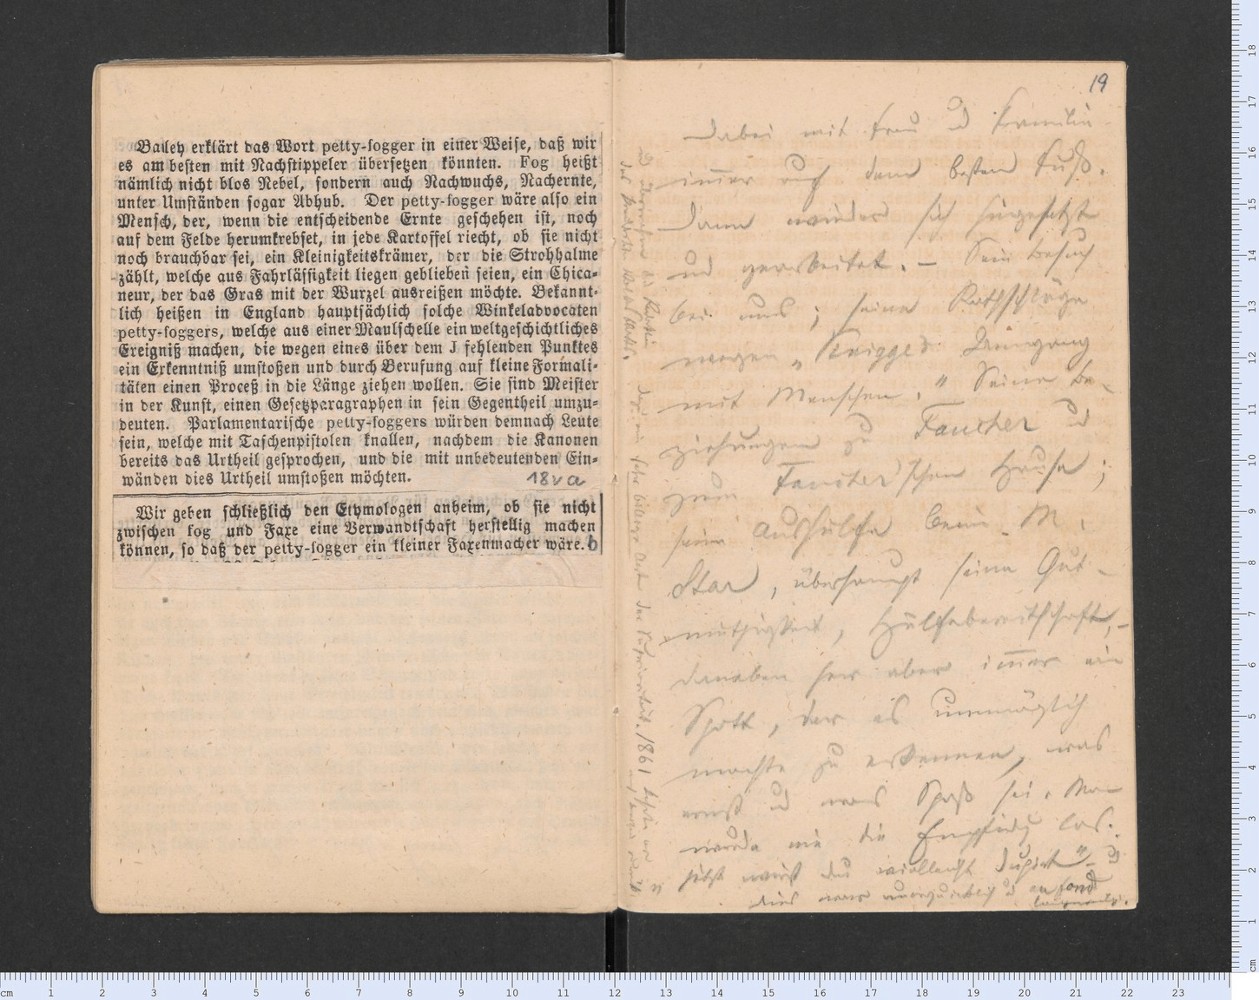 Bailey erklärt das Wort petty-fogger in einer Weise, daß wir
es am besten mit Nachstippeler übersetzen könnten. Fog heißt
nämlich nicht blos Nebel, sondern auch Nachwuchs, Nachernte,
unter Umständen sogar Abhub. Der petty-fogger wäre also ein
Mensch, der, wenn die entscheidende Ernte geschehen ist, noch
auf dem Felde herumkrebset, in jede Kartoffel riecht, ob sie nicht
noch brauchbar sei, ein Kleinigkeitskrämer, der die Strohhalme
zählt, welche aus Fahrlässigkeit liegen geblieben seien, ein Chica-
neur, der das Gras mit der Wurzel ausreißen möchte. Bekannt-
lich heißen in England hauptsächlich solche Winkeladvocaten
petty-foggers, welche aus einer Maulschelle ein weltgeschichtliches
Ereigniß machen, die wegen eines über dem J fehlenden Punktes
ein Erkenntniß umstoßen und durch Berufung auf kleine Formali-
täten einen Proceß in die Länge ziehen wollen. Sie sind Meister
in der Kunst, einen Gesetzparagraphen in sein Gegentheil umzu-
deuten. Parlamentarische petty-foggers würden demnach Leute
sein, welche mit Taschenpistolen knallen, nachdem die Kanonen
bereits das Urtheil gesprochen, und die mit unbedeutenden Ein-
wänden dies Urtheil umstoßen möchten.
18va
Wir geben schließlich den Etymologen anheim, ob sie nicht
zwischen fog und Faxe eine Verwandtschaft herstellig machen
können, so daß der petty-fogger ein kleiner Faxenmacher wäre. b
19
Dabei mit Frau u Familie
immer auf dem besten Fuß.
Dann wieder sich hingesetzt
und gearbeitet. – Sein Besuch
bei uns; seine Rathschläge
wegen „Knigges Umgang
mit Menschen." Seine Be-
ziehungen zu Faucher u
zum Faucher'schen Hause;
seine Aushülfe beim M.
Star, überhaupt seine Gut-
müthigkeit, Hülfebereitschaft,–
daneben her aber immer ein
Spott, der es unmöglich
machte zu erkennen, was
ernst u was Spaß sei. Man
wurde nie die Empfindg los:
jetzt wirst du vielleicht düpirt" – u
dies war unerquicklich u au fond